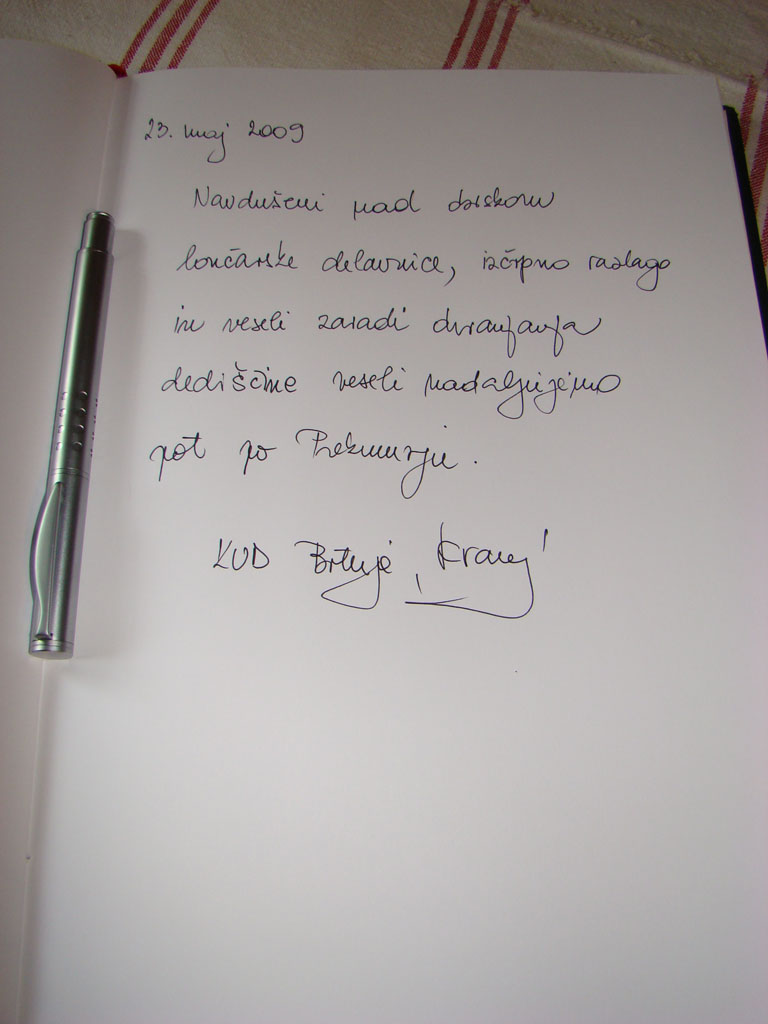 23. maj 2009
Navdušeni nad obiskom
lončarske delavnice, izčrpno razlago
in veseli zaradi ohranjanja
dediščine veseli nadaljujemo
pot po Prekmurju.
KUD Britje, Kranj